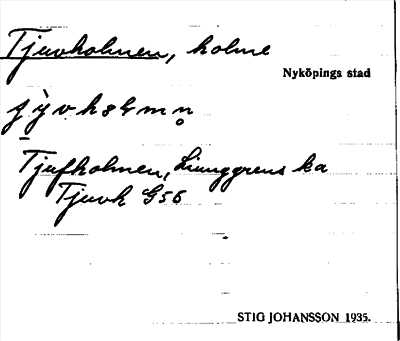 Tjuvholmen, holme
Nyköpings stad
Tjufholmen, Ljunggrens ka
Tjuvh G56
STIG JOHANSSON 1935.